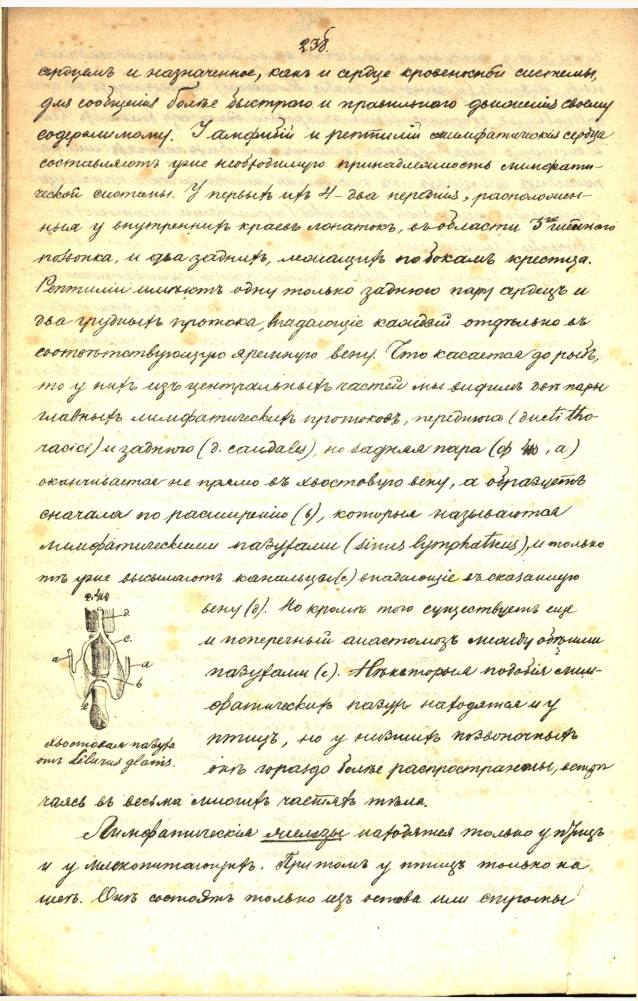 236.
сердцемъ и назначенное, какъ и сердце кровеносной системы,
для сообщенія болѣе быстраго и правильнаго движенія своему
содержимому. У амфибій и рептилій лимфатическія сердца
составляютъ уже необходимую принадлежность лимфати-
ческой системы. У первыхъ ихъ 4 – два переднія, расположен-
ныя у внутреннихъ краевъ лопатокъ, въ области 3го шейнаго
позвонка, и два заднихъ, лежащихъ по бокамъ крестца.
Рептиліи имѣютъ одну только заднюю пару сердецъ и
два грудныхъ протока, впадающіе каждый отдѣльно въ
соотвѣтствующую яремную вену. Что касается до рыбъ,
то у нихъ изъ центральныхъ частей мы видимъ двѣ пары
главныхъ лимфатическихъ протоковъ, переднюю (ducti tho-
racici) и заднюю (d. caudales), но задняя пара (ф 410, a)
оканчивается не прямо въ хвостовую вену, а образуетъ
сначала по расширенію (b), которыя называются
лимфатическими пазухами (sinus lymphaticus), и только
тѣ уже высылаютъ канальцы (c) впадающіе въ сказанную
вену (d). Но кромѣ того существуетъ еще
и поперечный анастомозъ между обѣими
пазухами (c). Нѣкоторыя подобія лим-
фатическихъ пазухъ находятся и у
птицъ, но у низшихъ позвоночныхъ
онѣ гораздо болѣе распространены, встрѣ-
чаясь въ весьма многихъ частяхъ тѣла.
ф. 410
d.
c.
a
a
b
e
хвостовая пазуха
отъ Silurus glanis.
Лимфатическія железы находятся только у птицъ
и у млекопитающихъ. Притомъ у птицъ только на
шеѣ. Онѣ состоятъ только изъ остова или стромы